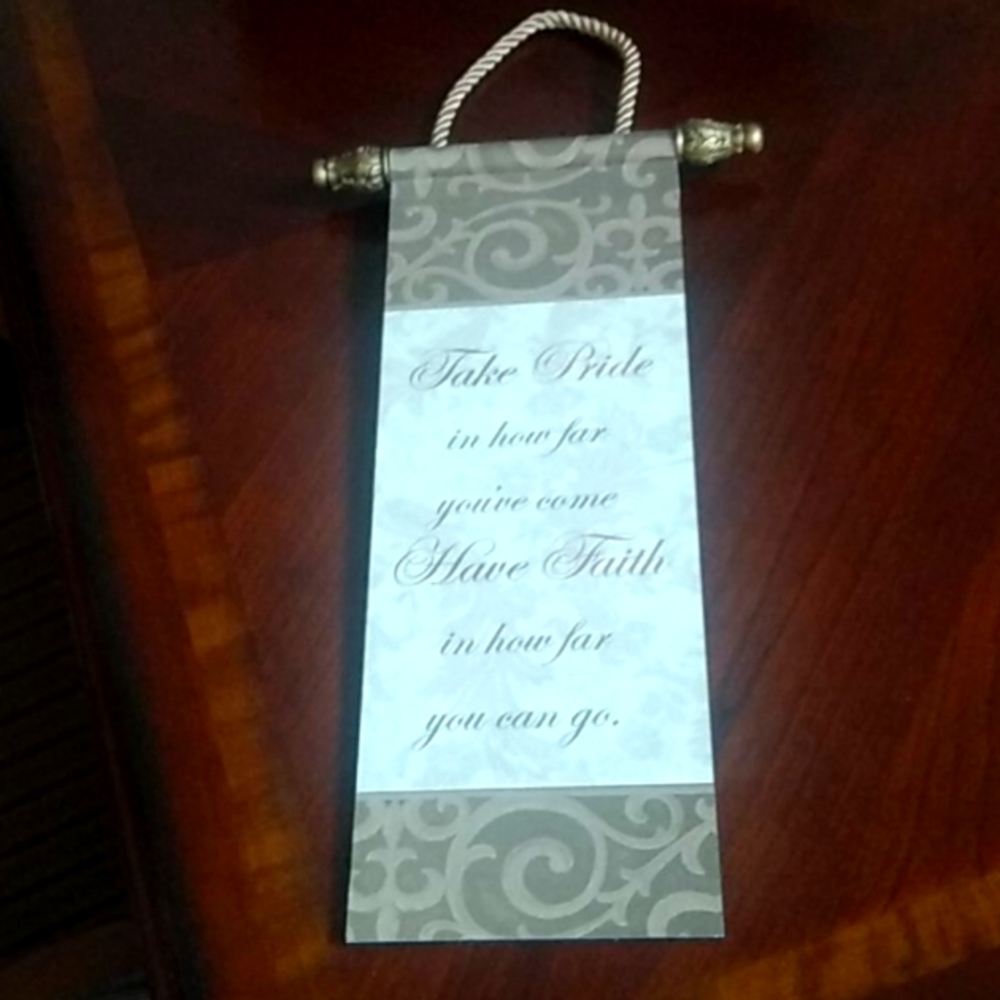 Take Pride
in how far
you've come
Have Faith
in how far
you can go.